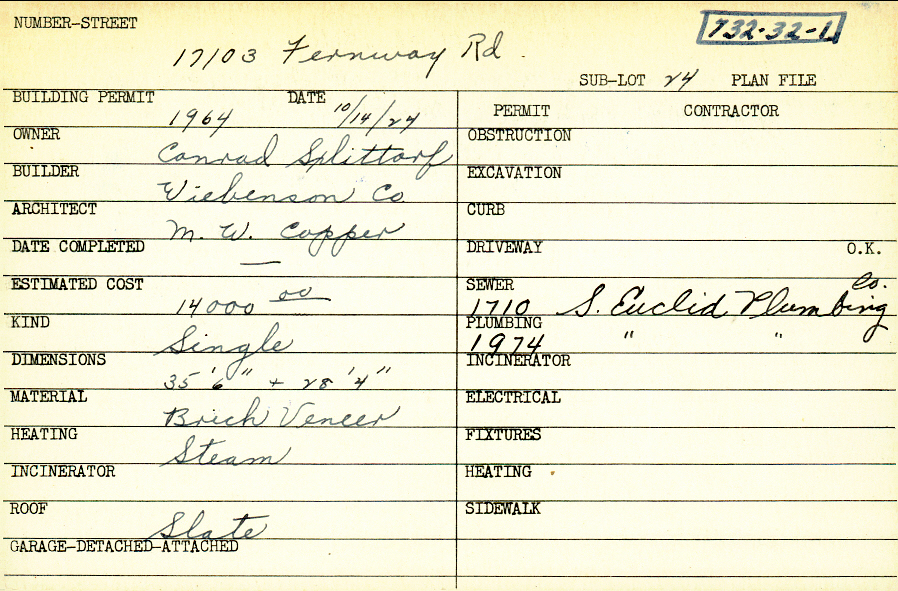 NUMBER-STREET
732-32-1
17103 Fernway Rd.
SUB-LOT 24 PLAN FILE
BUILDING PERMIT 1964 DATE 10/14/24
OWNER Conrad Splittorf
BUILDER Wiebenson Co.
ARCHITECT M. W. Copper
DATE COMPLETED —
ESTIMATED COST 14000 00
KIND Single
DIMENSIONS 35'6" + 28'4"
MATERIAL Brick Veneer
HEATING Steam
INCINERATOR
ROOF Slate
GARAGE-DETACHED-ATTACHED
PERMIT CONTRACTOR
OBSTRUCTION
EXCAVATION
CURB
DRIVEWAY O.K.
SEWER 1710 S. Euclid Plumbing Co.
PLUMBING 1974 " "
INCINERATOR
ELECTRICAL
FIXTURES
HEATING
SIDEWALK